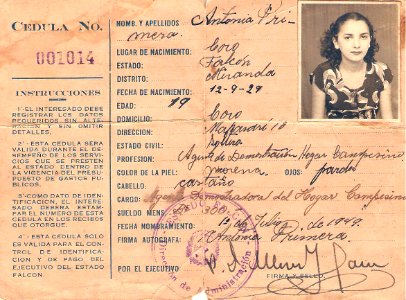 CEDULA No.
001014
INSTRUCCIONES
1- EL INTERESADO DEBE
REGISTRAR LOS DATOS
REQUERIDOS SIN ALTE-
RACION Y SIN OMITIR
DETALLES.
2- ESTA CÉDULA SERÁ
VALIDA DURANTE EL DE-
SEMPEÑO DE LOS SERVI-
CIOS QUE SE PRESTEN
AL ESTADO DENTRO DE
LA VIGENCIA DEL PRESU-
PUESTO DE GASTOS PÚ-
BLICOS.
3-COMO DATO DE IDEN-
TIFICACION, EL INTERE-
SADO DEBERA ESTAM-
PAR EL NUMERO DE ESTA
CEDULA EN LOS RECIBOS
QUE OTORGUE.
4- ESTA CEDULA SOLO
ES VALIDA PARA EL CON-
TROL DE IDENTIFICA-
CION Y DE PAGO DEL
EJECUTIVO DEL ESTADO
FALCON.
NOMB. Y APELLIDOS Antonia Pri-
mera
LUGAR DE NACIMIENTO: Coro
ESTADO: Falcón
DISTRITO: Miranda
FECHA DE NACIMIENTO: 12-9-29
EDAD: 19
DOMICILIO: Coro
DIRECCION: 10
ESTADO CIVIL: Soltera
PROFESION: Agente Demostración Hogar Campesino
COLOR DE LA PIEL: morena OJOS: pardos
CABELLO: castaño
CARGO: Agente Demostradora del Hogar Campesino
SUELDO MENS. 300
FECHA NOMBRAMIENTO: 1º de Julio de 1949.
FIRMA AUTOGRAFA: Antonia Primera
POR EL EJECUTIVO
FIRMA Y SELLO.
Administración